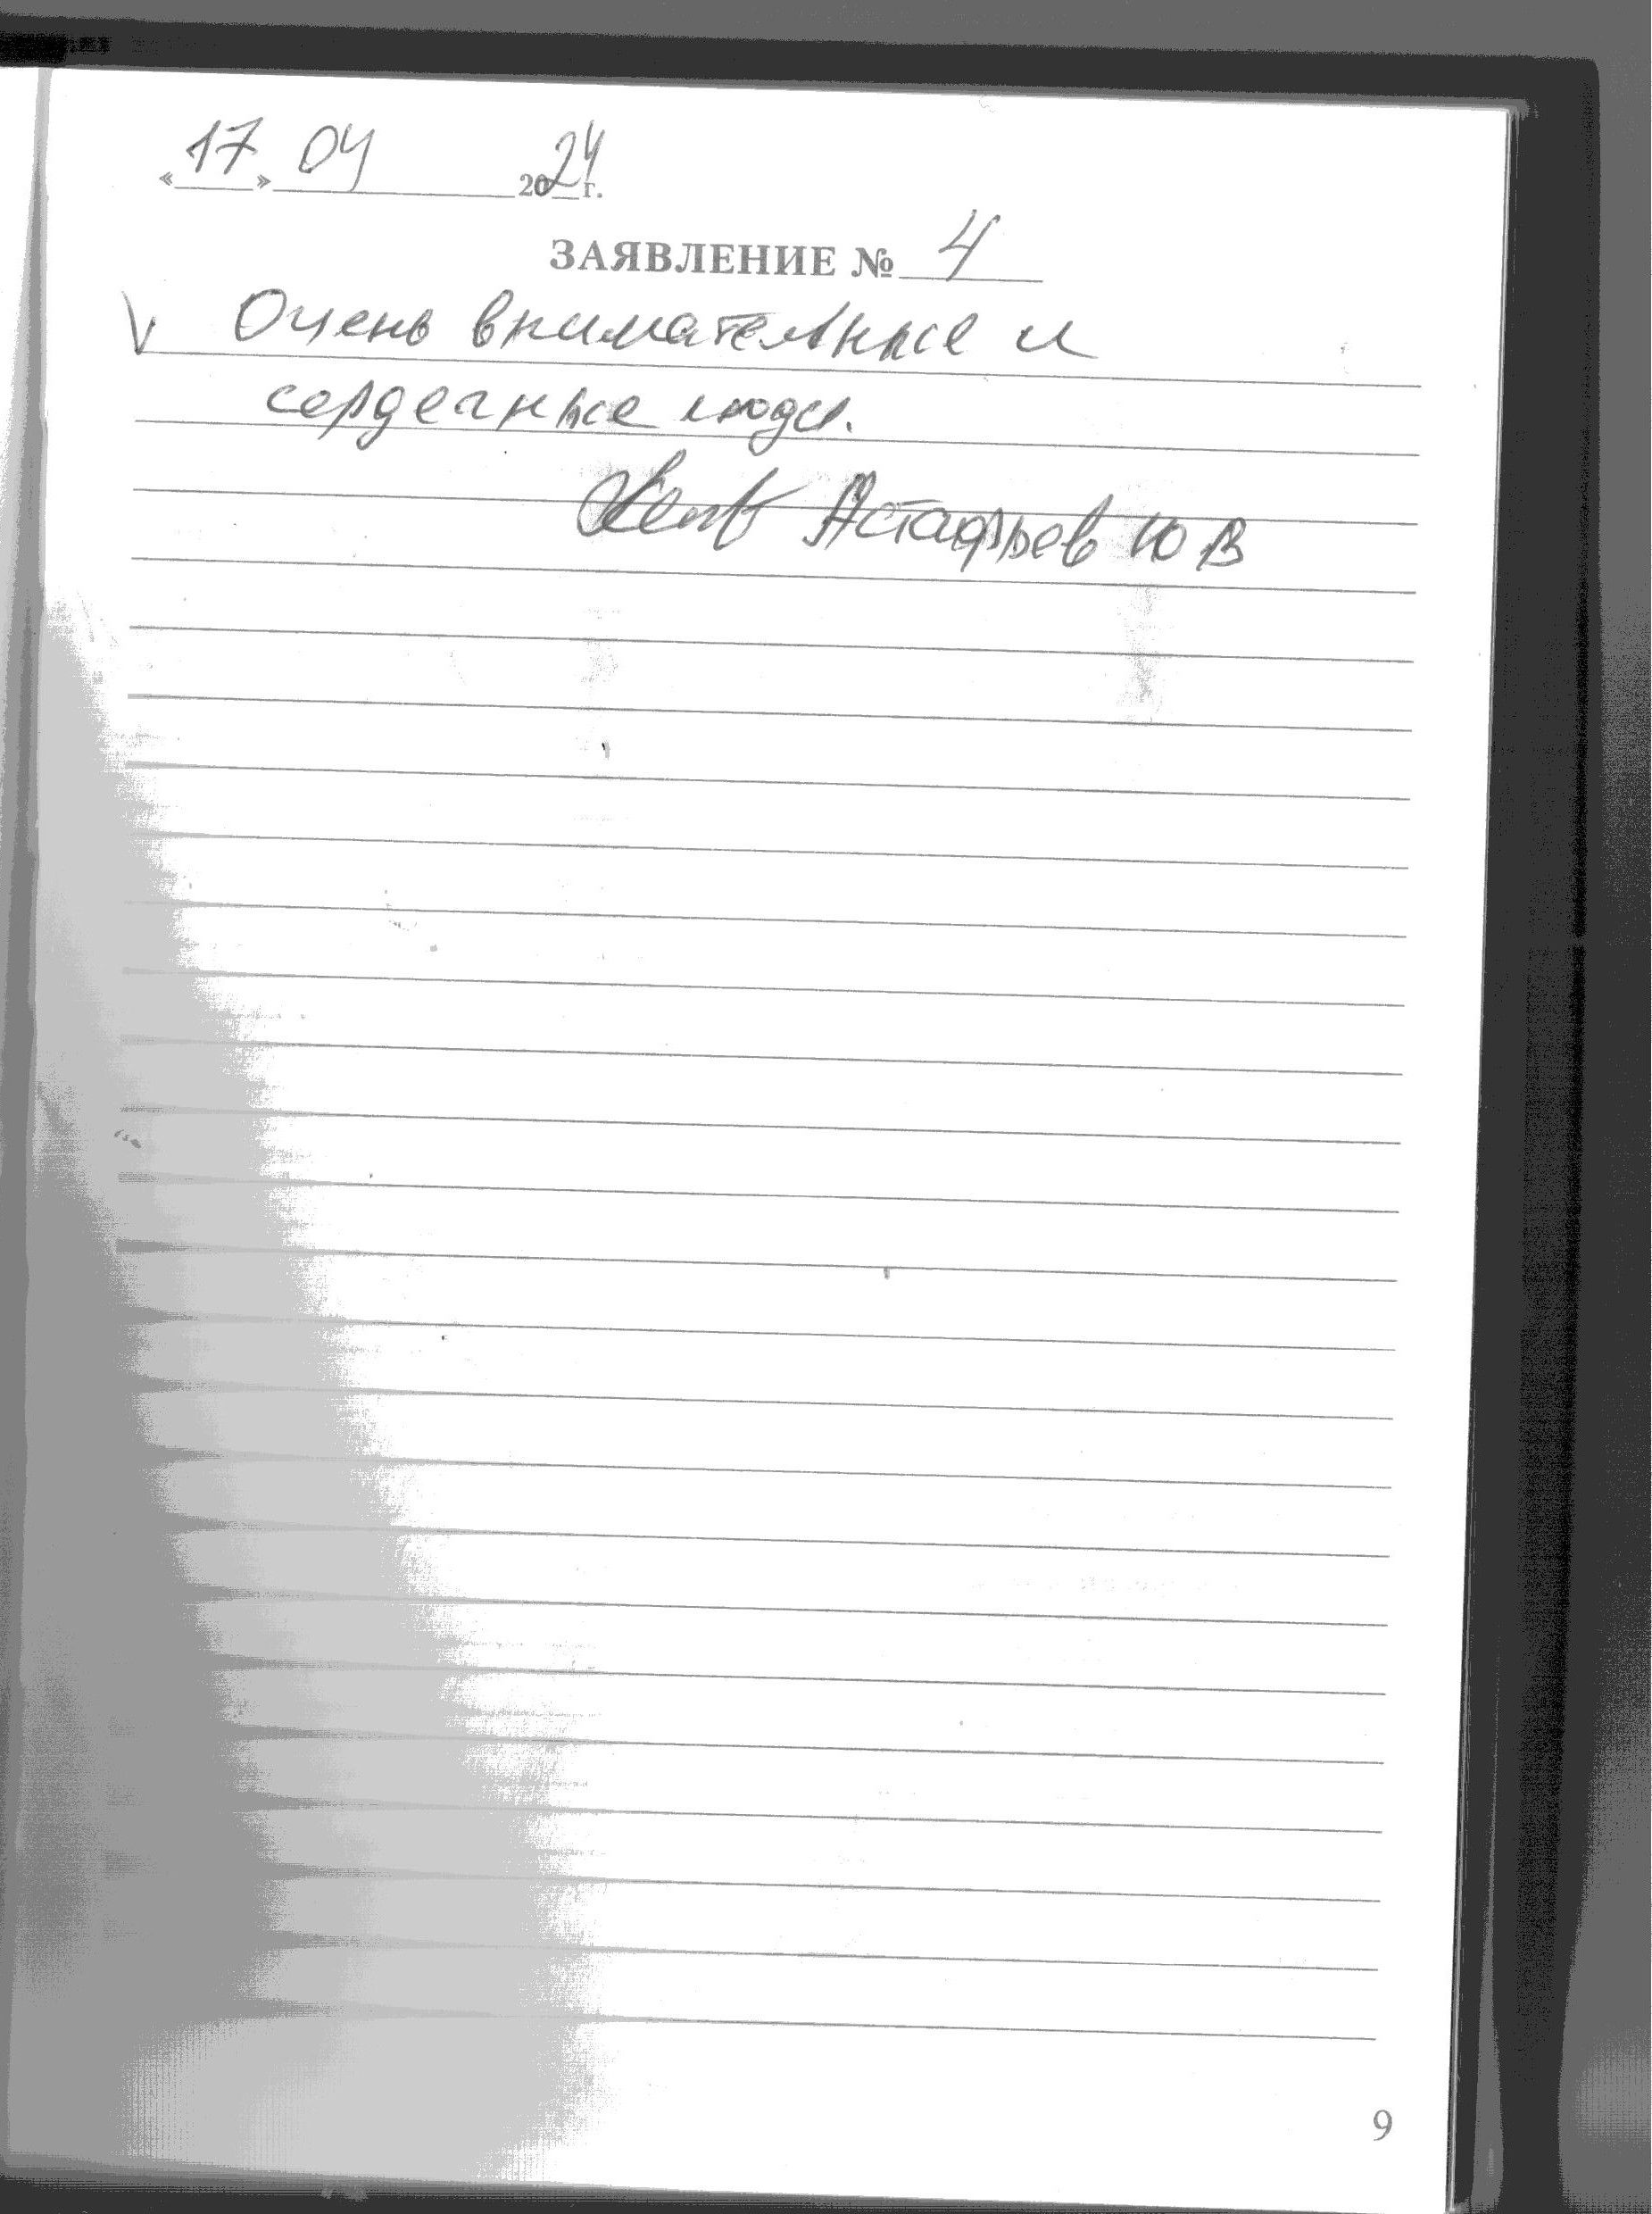 «17» 04 2024 г.
ЗАЯВЛЕНИЕ № 4
Очень внимательные и
сердечные люди.
Астафьев Ю В
9